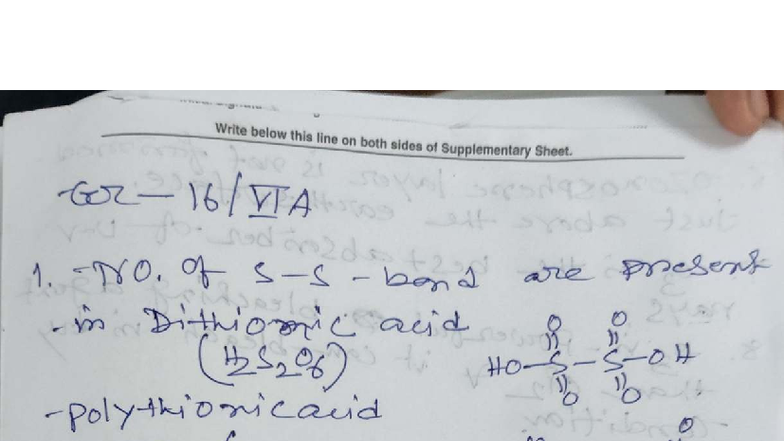 Write below this line on both sides of Supplementary Sheet.
Gr-16/VIA
1. -No. of S-S-bond are present
-in Dithionic acid
(H2S2O6)
O O
HO-S-S-OH
O O
-polythionic acid
O